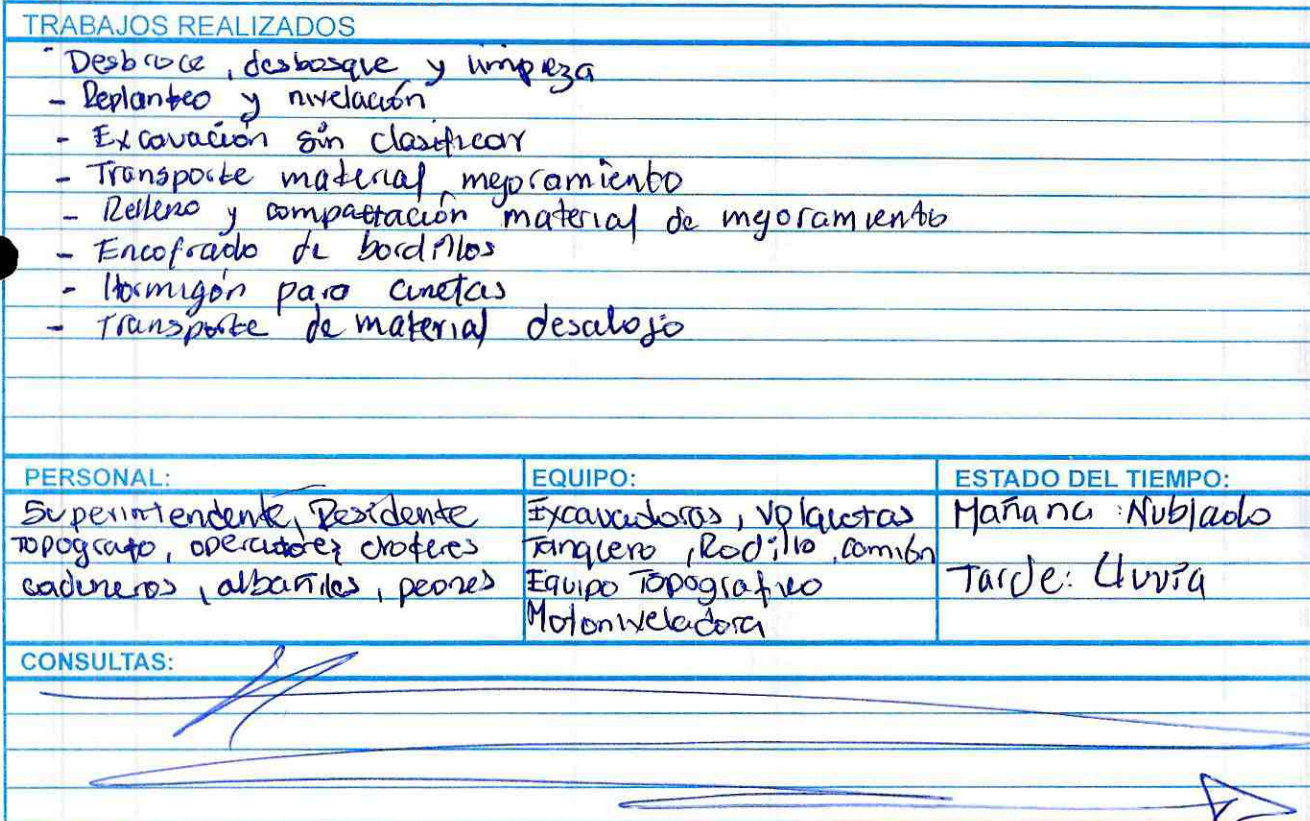 TRABAJOS REALIZADOS
- Desbroce, desbosque y limpieza
- Replanteo y nivelación
- Excavación sin clasificar
- Transporte material mejoramiento
- Relleno y compactación material de mejoramiento
- Encofrado de bordillos
- Hormigón para cunetas
- Transporte de material desalojo
PERSONAL:
Superintendente, Residente
Topografo, operadores choferes
cadeneros, albañiles, peones
EQUIPO:
Excavadoras, volquetas
Tanquero, Rodillo, camión
Equipo Topografico
Motoniveladora
ESTADO DEL TIEMPO:
Mañana: Nublado
Tarde: Lluvia
CONSULTAS: